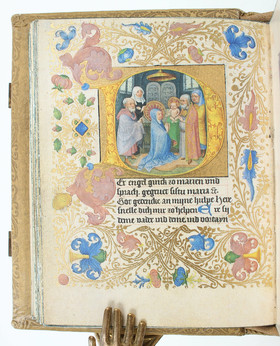 DEr engel ginck zo marien und
sprach. gegruet sistu maria
Got gedencke an myne hulpe Here
snelle dich mir zo helpen Ere sy
deme vader und deme und